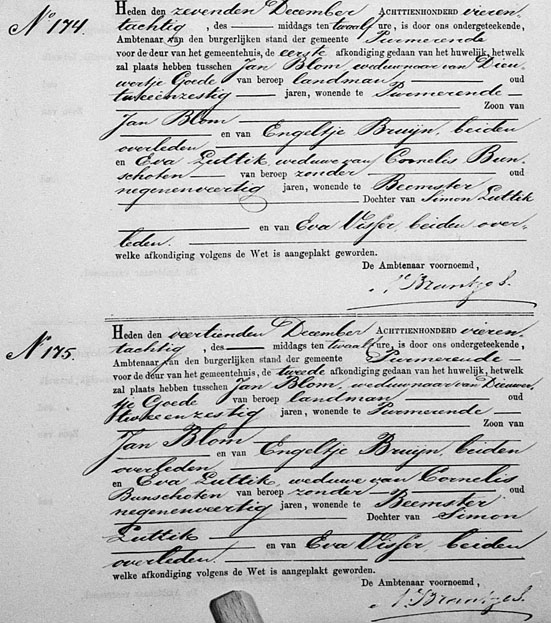 No 174.
Heden den zevenden December ACHTTIENHONDERD vieren-
tachtig, des middags ten twaalf ure, is door ons ondergeteekende,
Ambtenaar van den burgerlijken stand der gemeente Purmerende
voor de deur van het gemeentehuis, de eerste afkondiging gedaan van het huwelijk, hetwelk
zal plaats hebben tusschen Jan Blom weduwnaar van Dieu-
wertje Goede van beroep landman oud
tweeënzestig jaren, wonende te Purmerende
Zoon van
Jan Blom
en van Engeltje Bruijn, beiden
overleden
en Eva Luttik, weduwe van Cornelis Bun-
schoten van beroep zonder oud
negenenveertig jaren, wonende te Beemster
Dochter van Simon Luttik
en van Eva Visser, beiden over-
leden.
welke afkondiging volgens de Wet is aangeplakt geworden.
De Ambtenaar voornoemd,
No 175.
Heden den veertienden December ACHTTIENHONDERD vieren-
tachtig, des middags ten twaalf ure, is door ons ondergeteekende,
Ambtenaar van den burgerlijken stand der gemeente Purmerende
voor de deur van het gemeentehuis, de tweede afkondiging gedaan van het huwelijk, hetwelk
zal plaats hebben tusschen Jan Blom, weduwnaar van Dieuwert-
je Goede van beroep landman oud
tweeënzestig jaren, wonende te Purmerende
Zoon van
Jan Blom
en van Engeltje Bruijn, beiden
overleden
en Eva Luttik, weduwe van Cornelis
Bunschoten van beroep zonder oud
negenenveertig jaren, wonende te Beemster
Dochter van Simon
Luttik
en van Eva Visser, beiden
overleden.
welke afkondiging volgens de Wet is aangeplakt geworden.
De Ambtenaar voornoemd,